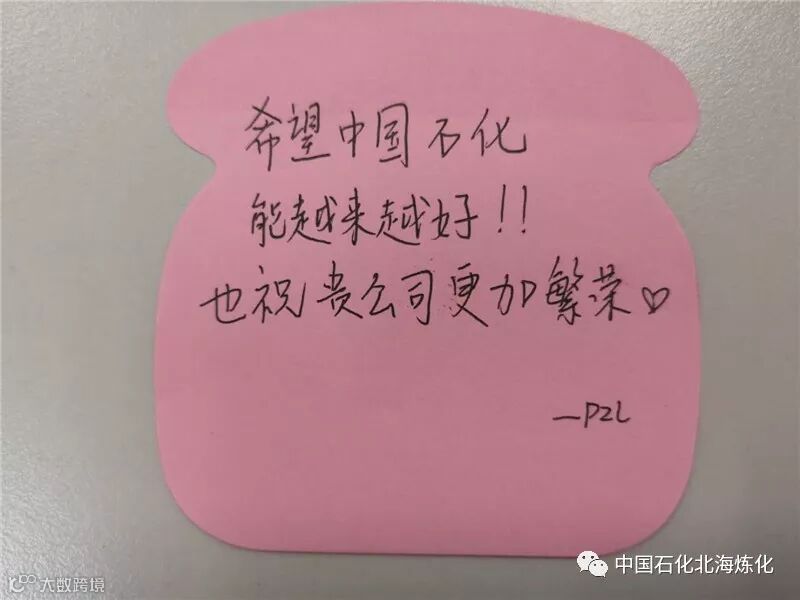 希望中国石化
能越来越好!!
也祝贵公司更加繁荣♡
—PZL
中国石化北海炼化
大数跨境